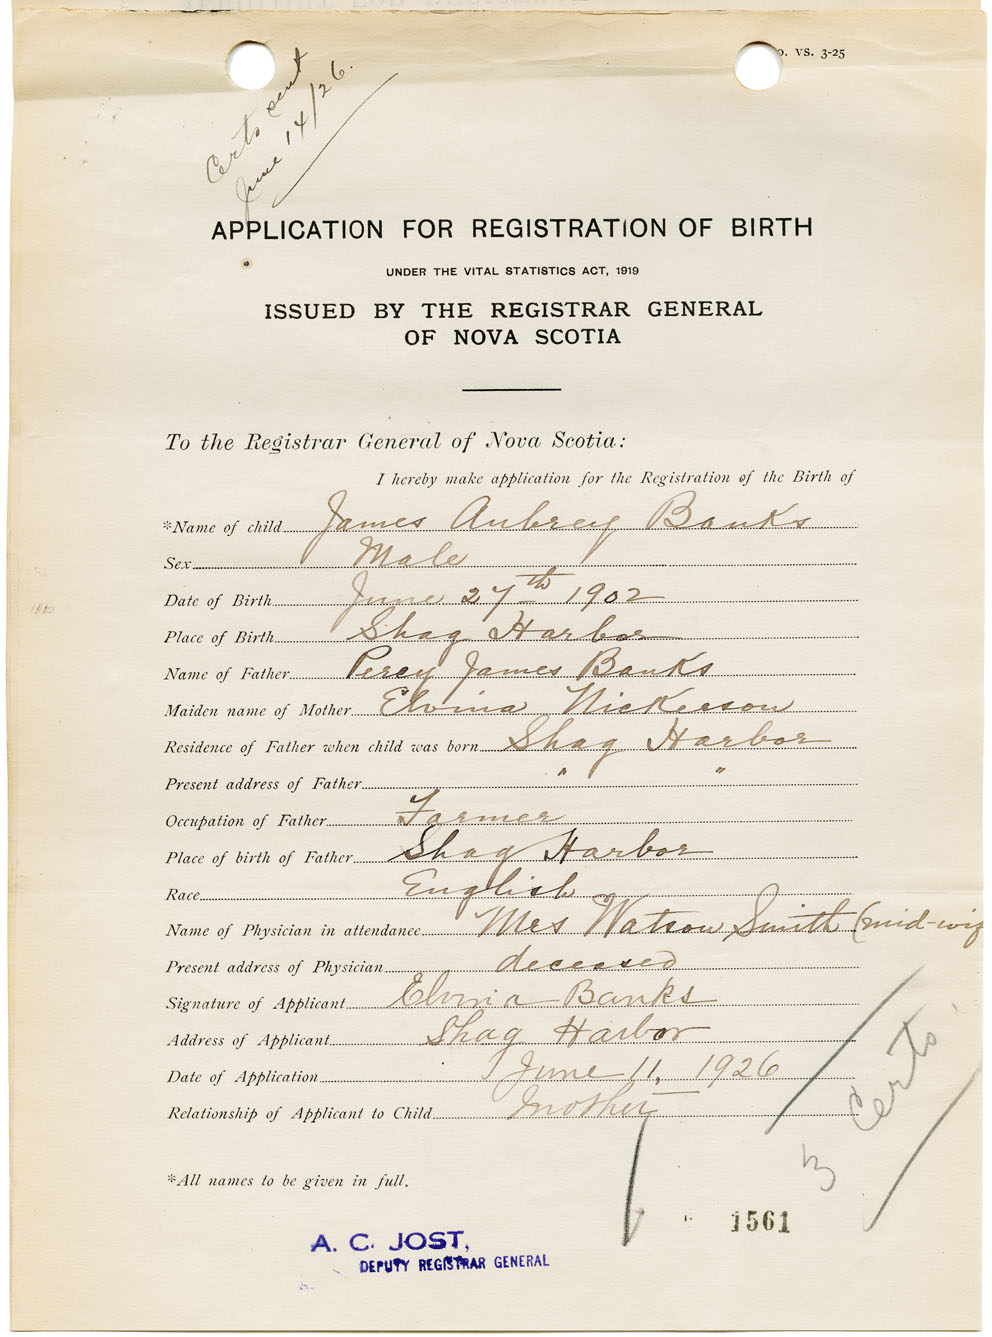 o. VS. 3-25
Certs sent
June 14/26.
APPLICATION FOR REGISTRATION OF BIRTH
UNDER THE VITAL STATISTICS ACT, 1919
ISSUED BY THE REGISTRAR GENERAL
OF NOVA SCOTIA
To the Registrar General of Nova Scotia:
I hereby make application for the Registration of the Birth of
*Name of child James Aubrey Banks
Sex Male
Date of Birth June 27th 1902
Place of Birth Shag Harbor
Name of Father Percy James Banks
Maiden name of Mother Elvina Nickerson
Residence of Father when child was born Shag Harbor
Present address of Father " "
Occupation of Father Farmer
Place of birth of Father Shag Harbor
Race English
Name of Physician in attendance Mrs Watson Smith (mid-wif
Present address of Physician deceased
Signature of Applicant Elvina Banks
Address of Applicant Shag Harbor
Date of Application June 11, 1926
Relationship of Applicant to Child mother
3 Certs.
*All names to be given in full.
1561
A. C. JOST,
DEPUTY REGISTRAR GENERAL